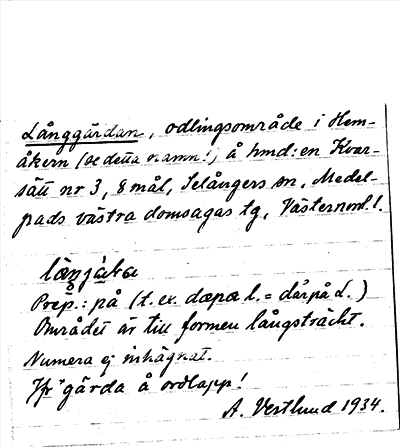 Långgärdan, odlingsområde i Hem-
åkern (se detta namn!) å hmd: en Kvar-
sätt nr 3, 8 mål, Selångers sn, Medel-
pads västra domsagas tg, Västernorrl. l.
Prep.: på (t. ex. dæpæ l. = därpå L.)
Området är till formen långsträckt.
Numera ej inhägnat.
Jfr gärda å ordlapp!
A. Vestlund 1934.